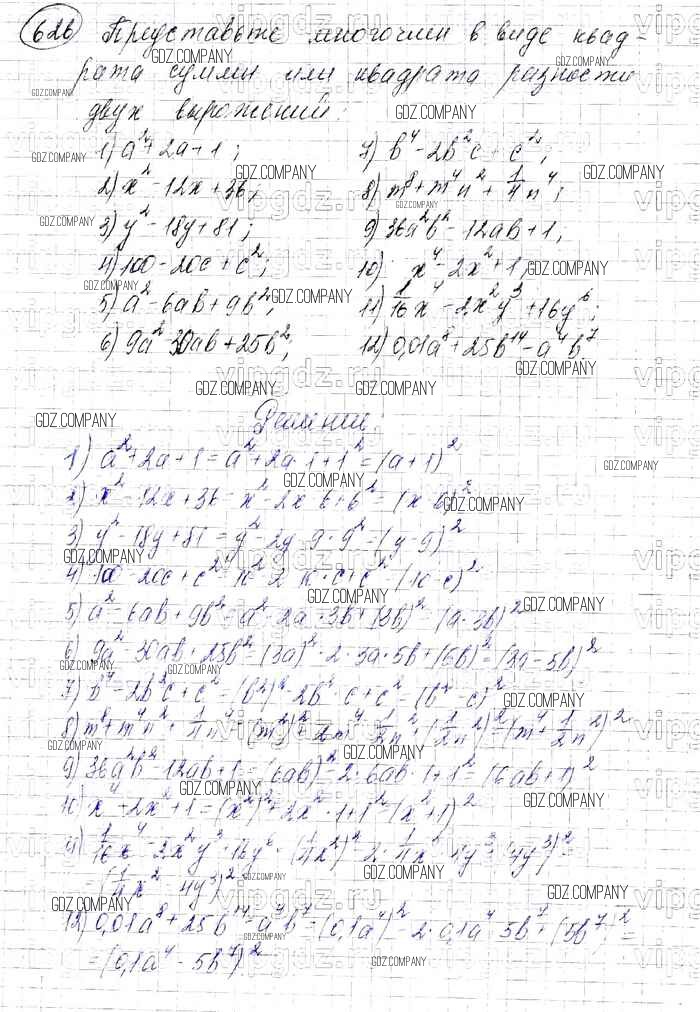 626 Представьте многочлен в виде квад-
рата суммы или квадрата разности
двух выражений:
1) a²+2a+1;
2) x²-12x+36;
3) y²-18y+81;
4) 100-20c+c²;
5) a²-6ab+9b²;
6) 9a² 30ab+25b²;
7) b⁴-2b²c+c²;
8) m⁸+m⁴n²+1/4n⁴;
9) 36a²b²-12ab+1;
10) x⁴-2x²+1;
11) 1/16x⁴-2x²y³+16y⁶;
12) 0,01a⁸+25b¹⁴-a⁴b⁷
Решение:
1) a²+2a+1=a²+2a·1+1²=(a+1)²
2) x²-12x+36=x²-2x·6+6²=(x-6)²
3) y²-18y+81=y²-2y·9+9²=(y-9)²
4) 100-20c+c²=10²-2·10·c+c²=(10-c)²
5) a²-6ab+9b²=a²-2a·3b+(3b)²=(a-3b)²
6) 9a²-30ab+25b²=(3a)²-2·3a·5b+(5b)²=(3a-5b)²
7) b⁴-2b²c+c²=(b²)²-2b²·c+c²=(b²-c)²
8) m⁸+m⁴n²+1/4n⁴=(m⁴)²+2m⁴·1/2n²+(1/2n²)²=(m⁴+1/2n²)²
9) 36a²b²-12ab+1=(6ab)²-2·6ab·1+1²=(6ab+1)²
10) x⁴+2x²+1=(x²)²+2x²·1+1²=(x²+1)²
11) 1/16x⁴-2x²y³+16y⁶=(1/4x²)²-2·1/4x²·4y³+(4y³)²=
=(1/4x²-4y³)²
12) 0,01a⁸+25b¹⁴-a⁴b⁷=(0,1a⁴)²-2·0,1a⁴·5b⁷+(5b⁷)²=
=(0,1a⁴-5b⁷)²
GDZ.COMPANY
vipgdz.ru